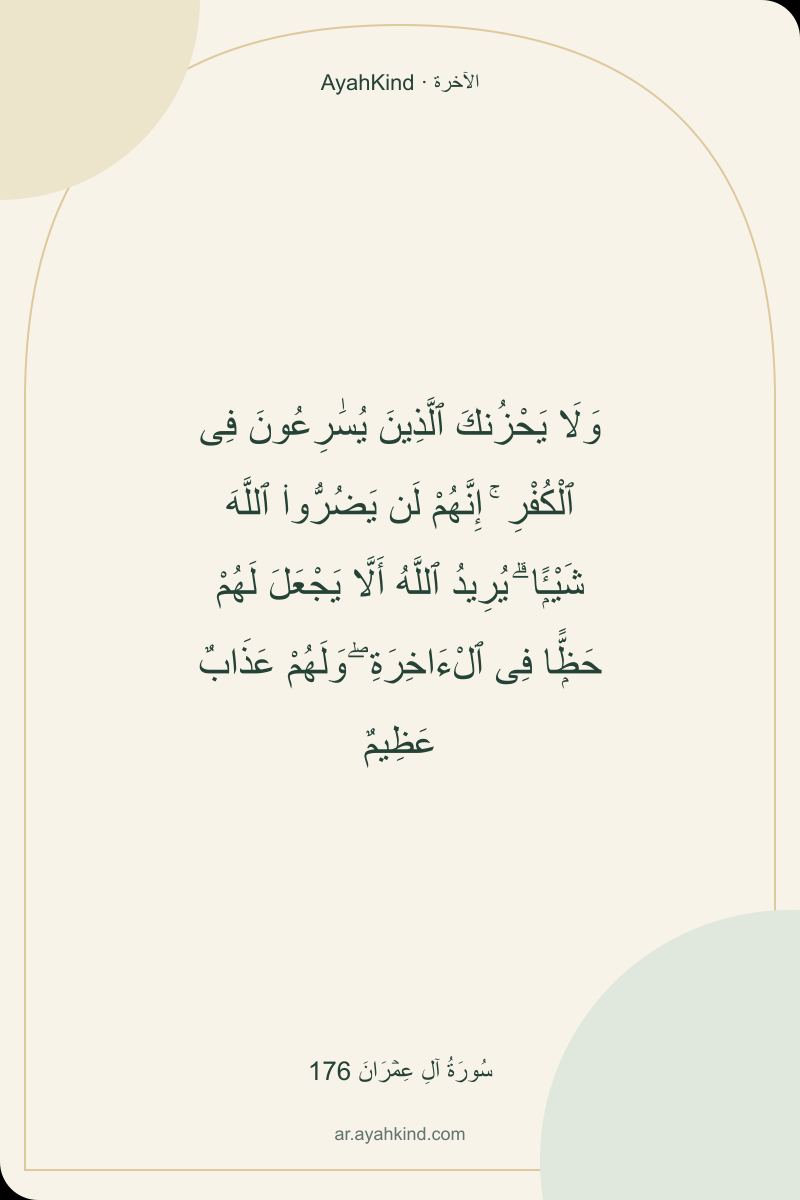 AyahKind · الآخرة
وَلَا يَحْزُنكَ ٱلَّذِينَ يُسَٰرِعُونَ فِى
ٱلْكُفْرِ ۚ إِنَّهُمْ لَن يَضُرُّوا۟ ٱللَّهَ
شَيْـًۭٔا ۗ يُرِيدُ ٱللَّهُ أَلَّا يَجْعَلَ لَهُمْ
حَظًّۭا فِى ٱلْءَاخِرَةِ ۖ وَلَهُمْ عَذَابٌ
عَظِيمٌ
سُورَةُ آلِ عِمۡرَانَ 176
ar.ayahkind.com